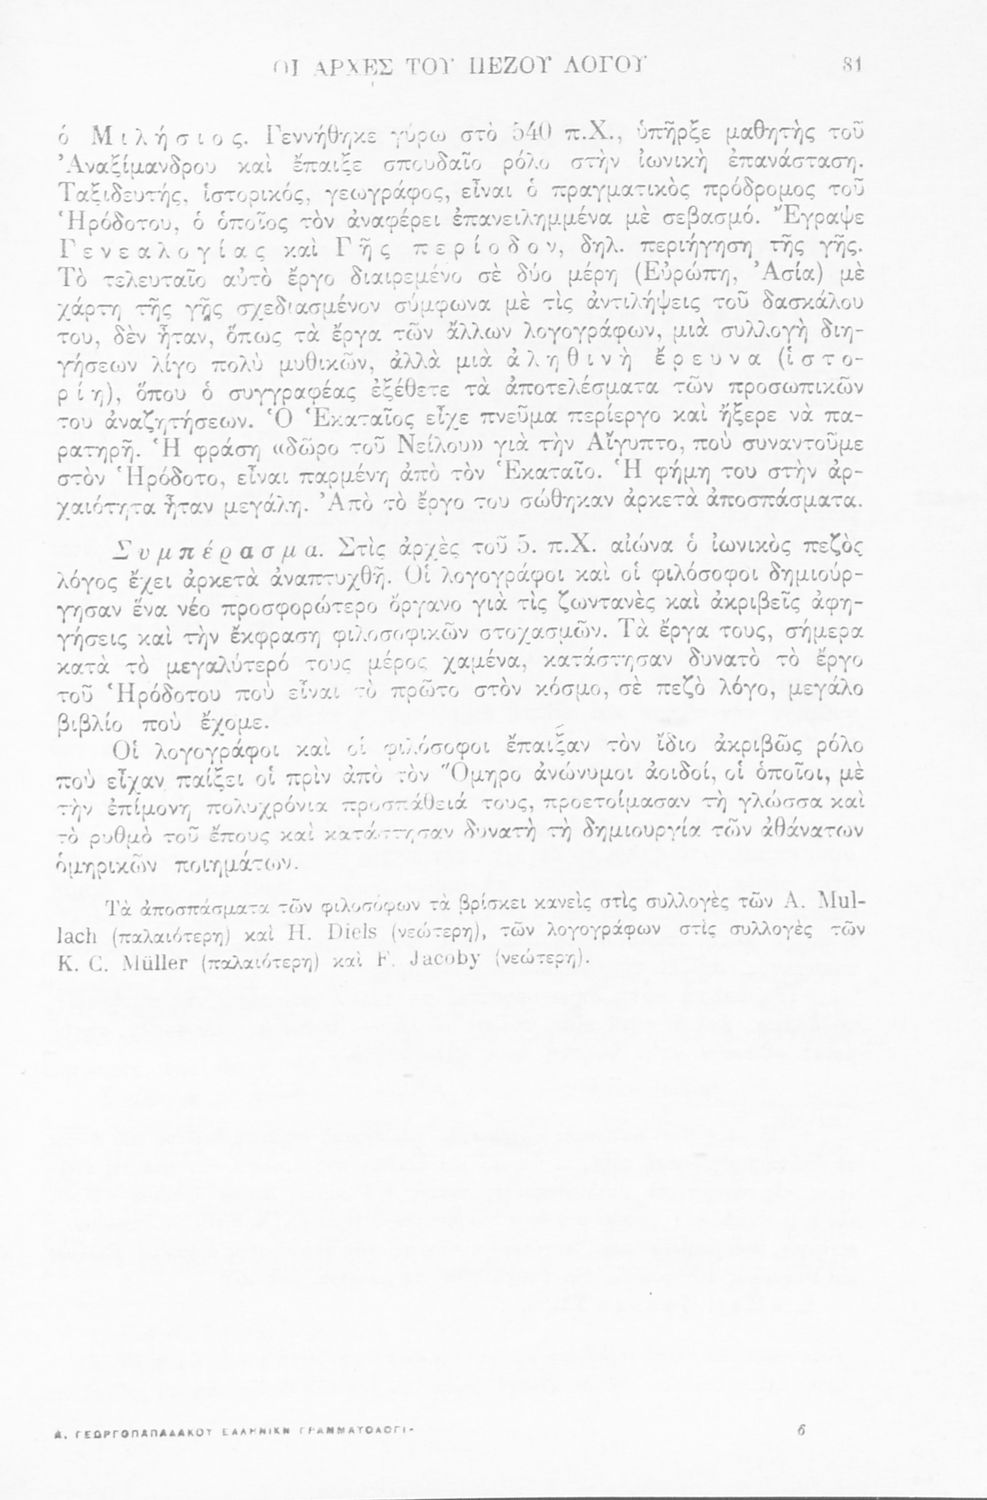 ΟΙ ΑΡΧΕΣ ΤΟΥ ΠΕΖΟΥ ΛΟΓΟΥ 81
ὁ Μιλήσιος. Γεννήθηκε γύρω στὸ 540 π.Χ., ὑπῆρξε μαθητὴς τοῦ
Ἀναξίμανδρου καὶ ἔπαιξε σπουδαῖο ρόλο στὴν ἰωνικὴ ἐπανάσταση.
Ταξιδευτής, ἱστορικός, γεωγράφος, εἶναι ὁ πραγματικὸς πρόδρομος τοῦ
Ἡρόδοτου, ὁ ὁποῖος τὸν ἀναφέρει ἐπανειλημμένα μὲ σεβασμό. Ἔγραψε
Γενεαλογίας καὶ Γῆς περίοδον, δηλ. περιήγηση τῆς γῆς.
Τὸ τελευταῖο αὐτὸ ἔργο διαιρεμένο σὲ δύο μέρη (Εὐρώπη, Ἀσία) μὲ
χάρτη τῆς γῆς σχεδιασμένον σύμφωνα μὲ τὶς ἀντιλήψεις τοῦ δασκάλου
του, δὲν ἦταν, ὅπως τὰ ἔργα τῶν ἄλλων λογογράφων, μιὰ συλλογὴ διη-
γήσεων λίγο πολὺ μυθικῶν, ἀλλὰ μιὰ ἀληθινὴ ἔρευνα (ἱστο-
ρίη), ὅπου ὁ συγγραφέας ἐξέθετε τὰ ἀποτελέσματα τῶν προσωπικῶν
του ἀναζητήσεων. Ὁ Ἑκαταῖος εἶχε πνεῦμα περίεργο καὶ ἤξερε νὰ πα-
ρατηρῆ. Ἡ φράση «δῶρο τοῦ Νείλου» γιὰ τὴν Αἴγυπτο, ποὺ συναντοῦμε
στὸν Ἡρόδοτο, εἶναι παρμένη ἀπὸ τὸν Ἑκαταῖο. Ἡ φήμη του στὴν ἀρ-
χαιότητα ἦταν μεγάλη. Ἀπὸ τὸ ἔργο του σώθηκαν ἀρκετὰ ἀποσπάσματα.
Συμπέρασμα. Στὶς ἀρχὲς τοῦ 5. π.Χ. αἰώνα ὁ ἰωνικὸς πεζὸς
λόγος ἔχει ἀρκετὰ ἀναπτυχθῆ. Οἱ λογογράφοι καὶ οἱ φιλόσοφοι δημιούρ-
γησαν ἕνα νέο προσφορώτερο ὄργανο γιὰ τὶς ζωντανὲς καὶ ἀκριβεῖς ἀφη-
γήσεις καὶ τὴν ἔκφραση φιλοσοφικῶν στοχασμῶν. Τὰ ἔργα τους, σήμερα
κατὰ τὸ μεγαλύτερό τους μέρος χαμένα, κατάστησαν δυνατὸ τὸ ἔργο
τοῦ Ἡρόδοτου ποὺ εἶναι τὸ πρῶτο στὸν κόσμο, σὲ πεζὸ λόγο, μεγάλο
βιβλίο ποὺ ἔχομε.
Οἱ λογογράφοι καὶ οἱ φιλόσοφοι ἔπαιξαν τὸν ἴδιο ἀκριβῶς ρόλο
ποὺ εἶχαν παίξει οἱ πρὶν ἀπὸ τὸν Ὅμηρο ἀνώνυμοι ἀοιδοί, οἱ ὁποῖοι, μὲ
τὴν ἐπίμονη πολυχρόνια προσπάθειά τους, προετοίμασαν τὴ γλώσσα καὶ
τὸ ρυθμὸ τοῦ ἔπους καὶ κατάστησαν δυνατὴ τὴ δημιουργία τῶν ἀθάνατων
ὁμηρικῶν ποιημάτων.
Τὰ ἀποσπάσματα τῶν φιλοσόφων τὰ βρίσκει κανεὶς στὶς συλλογὲς τῶν A. Mul-
lach (παλαιότερη) καὶ H. Diels (νεώτερη), τῶν λογογράφων στὶς συλλογὲς τῶν
K. C. Müller (παλαιότερη) καὶ F. Jacoby (νεώτερη).
Α. ΓΕΩΡΓΟΠΑΠΑΔΑΚΟΥ ΕΛΛΗΝΙΚΗ ΓΡΑΜΜΑΤΟΛΟΓΙ- 6